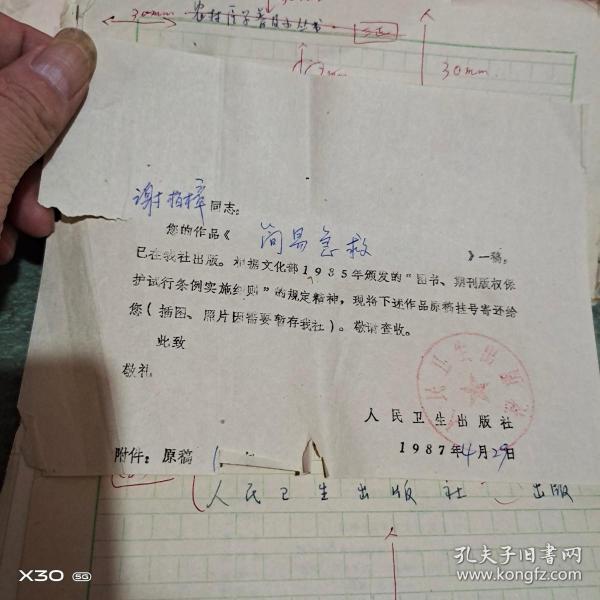 30mm 农村医学普及丛书
30mm
谢柏樟同志：
您的作品《简易急救》一稿，
已在我社出版。根据文化部1985年颁发的“图书、期刊版权保
护试行条例实施细则”的规定精神，现将下述作品原稿挂号寄还给
您（插图、照片因需要暂存我社）。敬请查收。
此致
敬礼
人民卫生出版社
人民卫生出版社
1987年4月29日
附件：原稿
人民卫生出版社 出版
X30 5G
孔夫子旧书网
www.kongfz.com